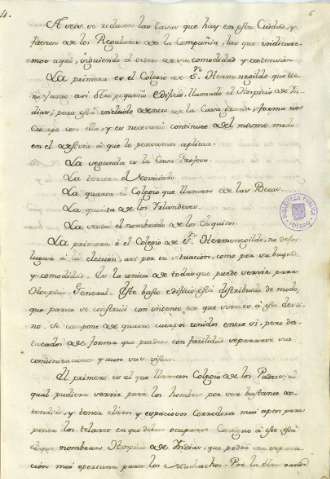 4.
6
Ahora se reducen las Casas que hay en esta Ciudad, y
fueron de los Regulares de la Compañia, las que indicare-
mos aqui, siguiendo el orden de su comodidad y extension.
La primera es el Colegio de Sn. Hermenegildo que tie-
ne
pequeño Edificio, llamado el Hospicio de In-
dias; pero está incluido dentro de la Casa grande y forma un
Cuerpo con ella, y es necesario continue del mismo modo
en el destino a que le pensamos aplicar.
La segunda es la Casa Profesa.
La tercera el Noviciado.
La quarta el Colegio que llaman de las Becas.
La quinta de los Irlandeses.
La sexta el nombrado de los Ingleses.
La primera o el Colegio de Sn. Hermenegildo, no dexa
lugar a la eleccion, asi por su situacion, como por su buque
y comodidad. Es la unica de todas que puede servir para
Hospicio General. Este basto edificio está distribuido de modo,
que parece se construió con intento de que sirviera a este desti-
no. Se compone de quatro cuerpos unidos entre si, pero de-
marcados de forma que pueden con facilidad separarse sus
comunicaciones y aun sus vistas.
El primero es el que llaman Colegio de los Padres, el
qual pudiera servir para los hombres por ser bastante
y tener altos y espaciosos Corredores mui aptos para
poner los telares en que deben ocuparse. Contiguo a este está
el que nombran Hospicio de Indias, que podrá con separa-
cion mui oportuna para los Muchachos. Por la otra vanda
BIBLIOTECA PUBLICA